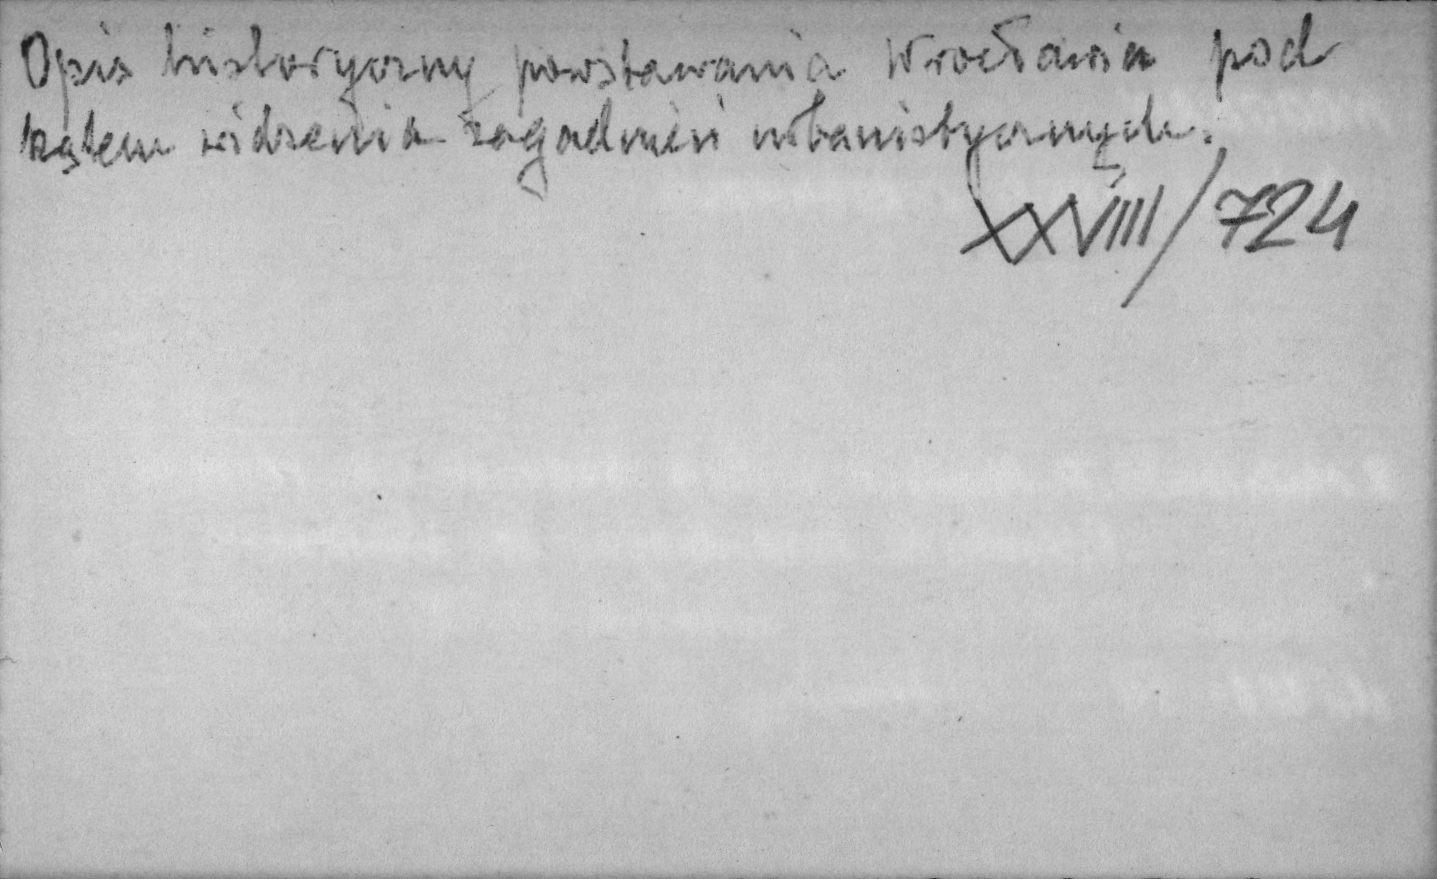 Opis historyczny powstawania Wrocławia pod
kątem widzenia zagadnień urbanistycznych.
XXVIII/724